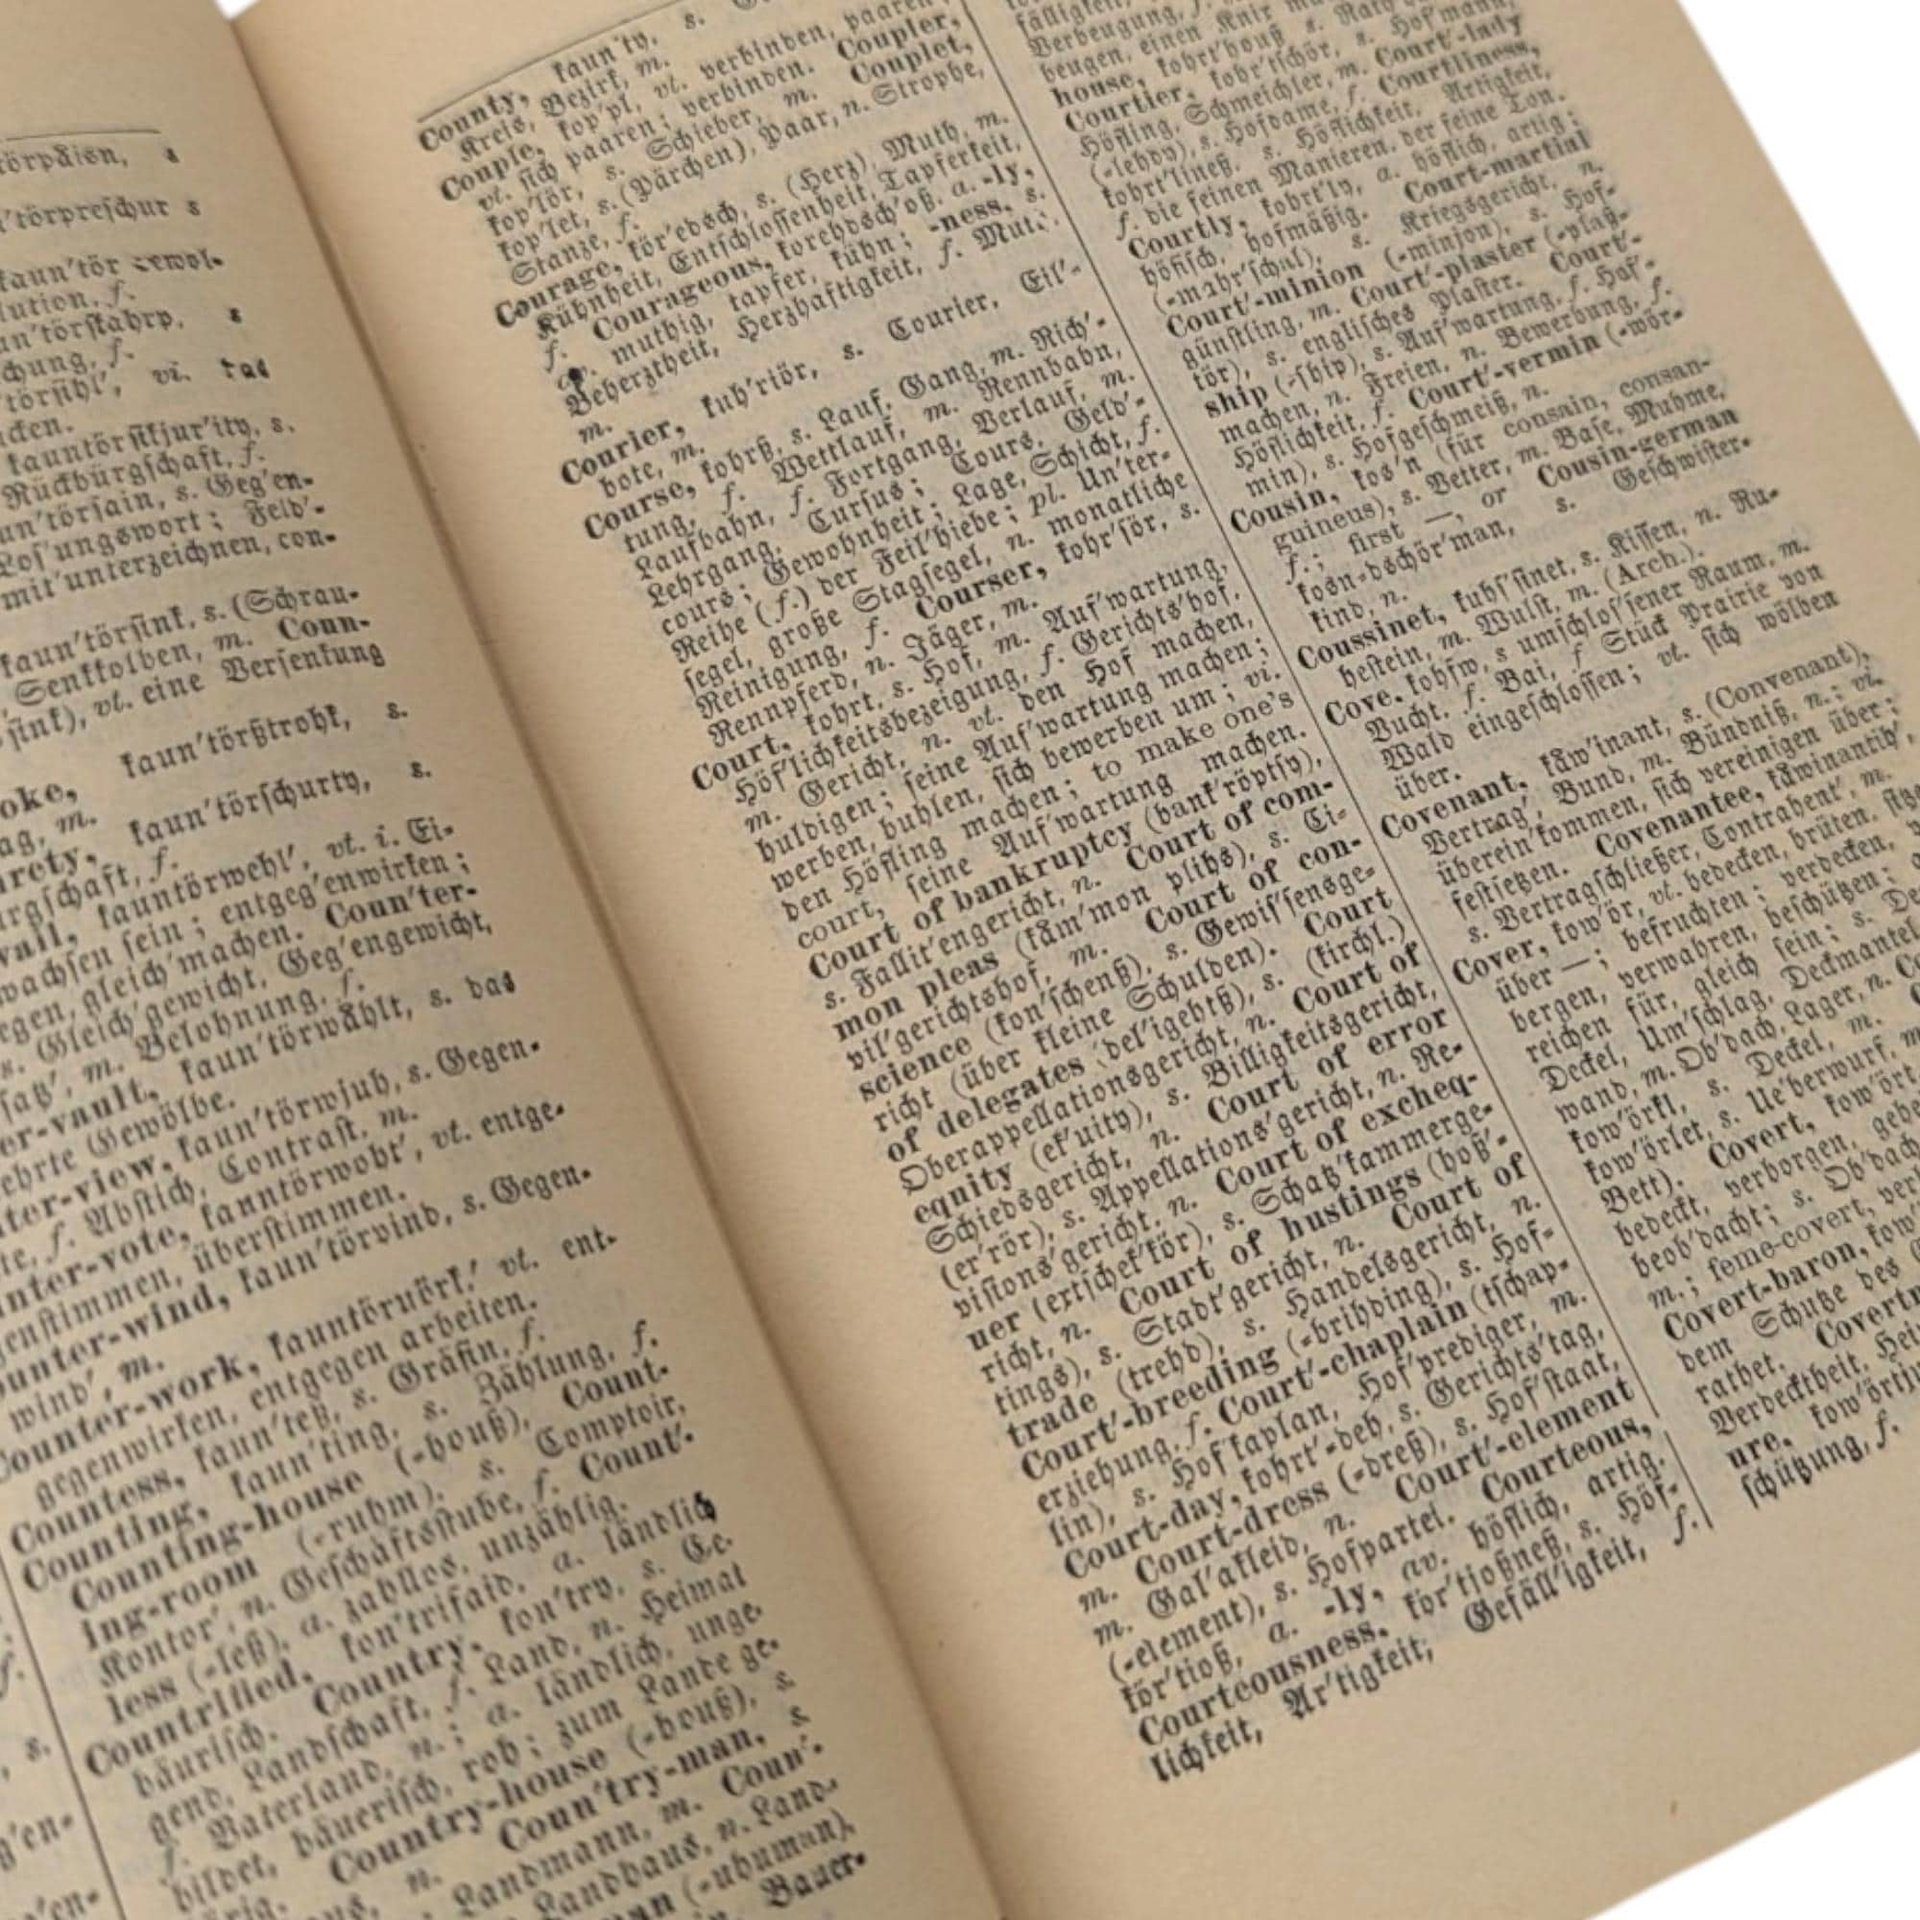 törpäisn, s
törpreschur s
kaun'tör
lution, f.
un'törskahrp, s
chung, f.
törstihl', vi. das
cken.
kauntörstkjur'ity, s.
Rückbürgschaft, f.
un'törsain, s. Geg'en-
Los'ungswort; Feld'-
mit'unterzeichnen, con-
kaun'törsink, s. (Schrau-
Senkkolben, m. Coun-
sink), vt. eine Versenkung
oke, kaun'törßtrohk, s.
ag, m.
urety, kaun'törschurty, s.
rgschaft, f.
vail, kauntörwehl', vt. i. Ei-
wachsen sein; entgeg'enwirken;
egen, gleich'machen. Coun'ter-
s. Gleich'gewicht, Geg'engewicht,
satz', m. Belohnung, f.
er-vault, kaun'törwählt, s. das
ehrte Gewölbe.
ter-view, kaun'törwjuh, s. Gegen-
te, f. Abstich, Contrast, m.
nter-vote, kauntörwoht', vt. entge-
genstimmen, überstimmen.
ounter-wind, kaun'törvind, s. Gegen-
wind', m.
Counter-work, kauntöruörk', vt. ent-
gegenwirken, entgegen arbeiten.
Countess, kaun'teß, s. Gräfin, f.
Counting, kaun'ting, s. Zählung, f.
Counting-house (-houß), Count-
ing-room (-ruhm), s. Comptoir,
Kontor', n. Geschäftsstube, f. Count'-
less (-leß), a. zahllos, unzählig.
Countrified, kon'trifaid, a. ländlich
bäurisch. Country, kon'try, s. Ge-
gend, Landschaft, f. Land, n. Heimat
f. Vaterland, n.; a. ländlich, unge-
bildet, bäuerisch, roh; zum Lande ge-
hörig. Country-house (-houß), s
Landhaus, n. Coun'try-man, s.
Landmann, m. Coun'-
Landhaus, n. Land-
man (-uhuman),
Bauer-
County, kaun'ty, s.
Kreis, Bezirk, m.
Couple, kop'pl, vt. verbinden, paaren;
vi. sich paaren; verbinden. Coupler,
kop'lör, s. Schieber, m. Couplet,
kop'let, s. (Pärchen), Paar, n. Strophe,
Stanze, f.
Courage, kör'edsch, s. (Herz), Muth, m.
Kühnheit, Entschlossenheit, Tapferkeit,
f. Courageous, korehdsch'oß, a. -ly,
av. muthig, tapfer, kühn; -ness, s.
Beherztheit, Herzhaftigkeit, f. Mut.
m.
Courier, kuh'riör, s. Courier, Eil'-
bote, m.
Course, kohrß, s. Lauf, Gang, m. Rich'-
tung, f. Wettlauf, m. Rennbahn,
Laufbahn, f. Fortgang, Verlauf, m.
Lehrgang, Cursus; Cours, Geld'-
cours; Gewohnheit; Lage, Schicht, f.
Reihe (f.) der Feil'hiebe; pl. Un'ter-
segel, große Stagsegel, n. monatliche
Reinigung, f. Courser, kohr'sör, s.
Rennpferd, n. Jäger, m.
Court, kohrt, s. Hof, m. Auf'wartung,
Höf'lichkeitsbezeigung, f. Gerichts'hof,
m. Gericht, n. vt. den Hof machen,
huldigen; seine Auf'wartung machen;
werben, buhlen, sich bewerben um; vi.
den Höfling machen; to make one's
court, seine Auf'wartung machen.
Court of bankruptcy (bank'röptsy),
s. Fallit'engericht, n. Court of com-
mon pleas (kåm'mon plihs), s. Ci-
vil'gerichtshof, m. Court of con-
science (kon'schenß), s. Gewis'sensge-
richt (über kleine Schulden). Court
of delegates (del'igehtß), s. (kirchl.)
Oberappellationsgericht, n. Court of
equity (ek'uity), s. Billigkeitsgericht,
Schiedsgericht, n. Court of error
(er'rör), s. Appellations'gericht, n. Re-
visions'gericht, n. Court of excheq-
uer (extschek'kör), s. Schatz'kammerge-
richt, n. Court of hustings (hoß'-
tings), s. Stadt'gericht, n. Court of
trade (trehd), s. Handelsgericht, n.
Court'-breeding (-brihding), s. Hof-
erziehung, f. Court'-chaplain (tschap-
lin), s. Hof'kaplan, Hof'prediger, m.
Court-day, kohrt'-deh, s. Gerichts'tag,
m. Court-dress (-dreß), s. Hof'staat,
m. Gal'akleid, n. Court'-element
(-element), s. Hofpartei. Courteous,
kör'tioß, a. -ly, av. höflich, artig.
Courteousness, kör'tioßneß, s. Höf-
lichkeit, Ar'tigkeit, Gefäll'igkeit, f.
fälligkeit,
Verbeugung, f.
beugen, einen Knix
house, kohrt'houß s. Rath
Courtier, kohr'tschör, s. Hof'mann,
Höfling, Schmeichler, m. Court'-lady
(-lehdy), s. Hofdame, f. Courtliness,
kohrt'lineß, s. Höflichkeit, Artigkeit,
f. die feinen Manieren, der feine Ton.
Courtly, kohrt'ly, a. höflich, artig;
höfisch, hofmäßig. Court-martial
(-mahr'schal), s. Kriegsgericht, n.
Court'-minion (-minjon), s. Hof-
günstling, m. Court'-plaster (-plaß-
tör), s. englisches Plaster. Court'-
ship (-schip), s. Auf'wartung, f. Hof-
machen, n. Freien, n. Bewerbung, f.
Höflichkeit, f. Court'-vermin (-wör-
min), s. Hofgeschmeiß, n.
Cousin, kos'n (für consain, consan-
guineus), s. Vetter, m. Base, Muhme,
f.; first —, or Cousin-german
kosn-dschör'man, s. Geschwister-
kind, n.
Coussinet, kuhs'sinet, s. Kissen, n. Ru-
hestein, m. Wulst, m. (Arch.).
Cove, kohfw, s umschlos'sener Raum, m.
Bucht, f. Bai, f Stück Prairie von
Wald eingeschlossen; vt. sich wölben
über.
Covenant, kåw'inant, s. (Convenant),
Vertrag', Bund, m. Bündniß, n.; vi.
überein'kommen, sich vereinigen über;
festsetzen. Covenantee, kåwinantih',
s. Vertragschließer, Contrahent', m.
Cover, kow'ör, vt. bedecken, brüten,
über —; befruchten; verdecken,
bergen, verwahren, beschützen;
reichen für, gleich sein; s. De
Deckel, Um'schlag, Deckmantel
wand, m. Ob'dach, Lager, n. Co
kow'örkl, s. Deckel, m.
kow'örlet, s. Ue'berwurf, m
Bett). Covert, kow'ört,
bedeckt, verborgen, gehe
beob'dacht; s. Ob'dach
m.; feme-covert, verh
Covert-baron, kow'
dem Schutze des
rathet. Covertn
Verdecktheit, Hei
ure, kow'örtju
schützung, f.